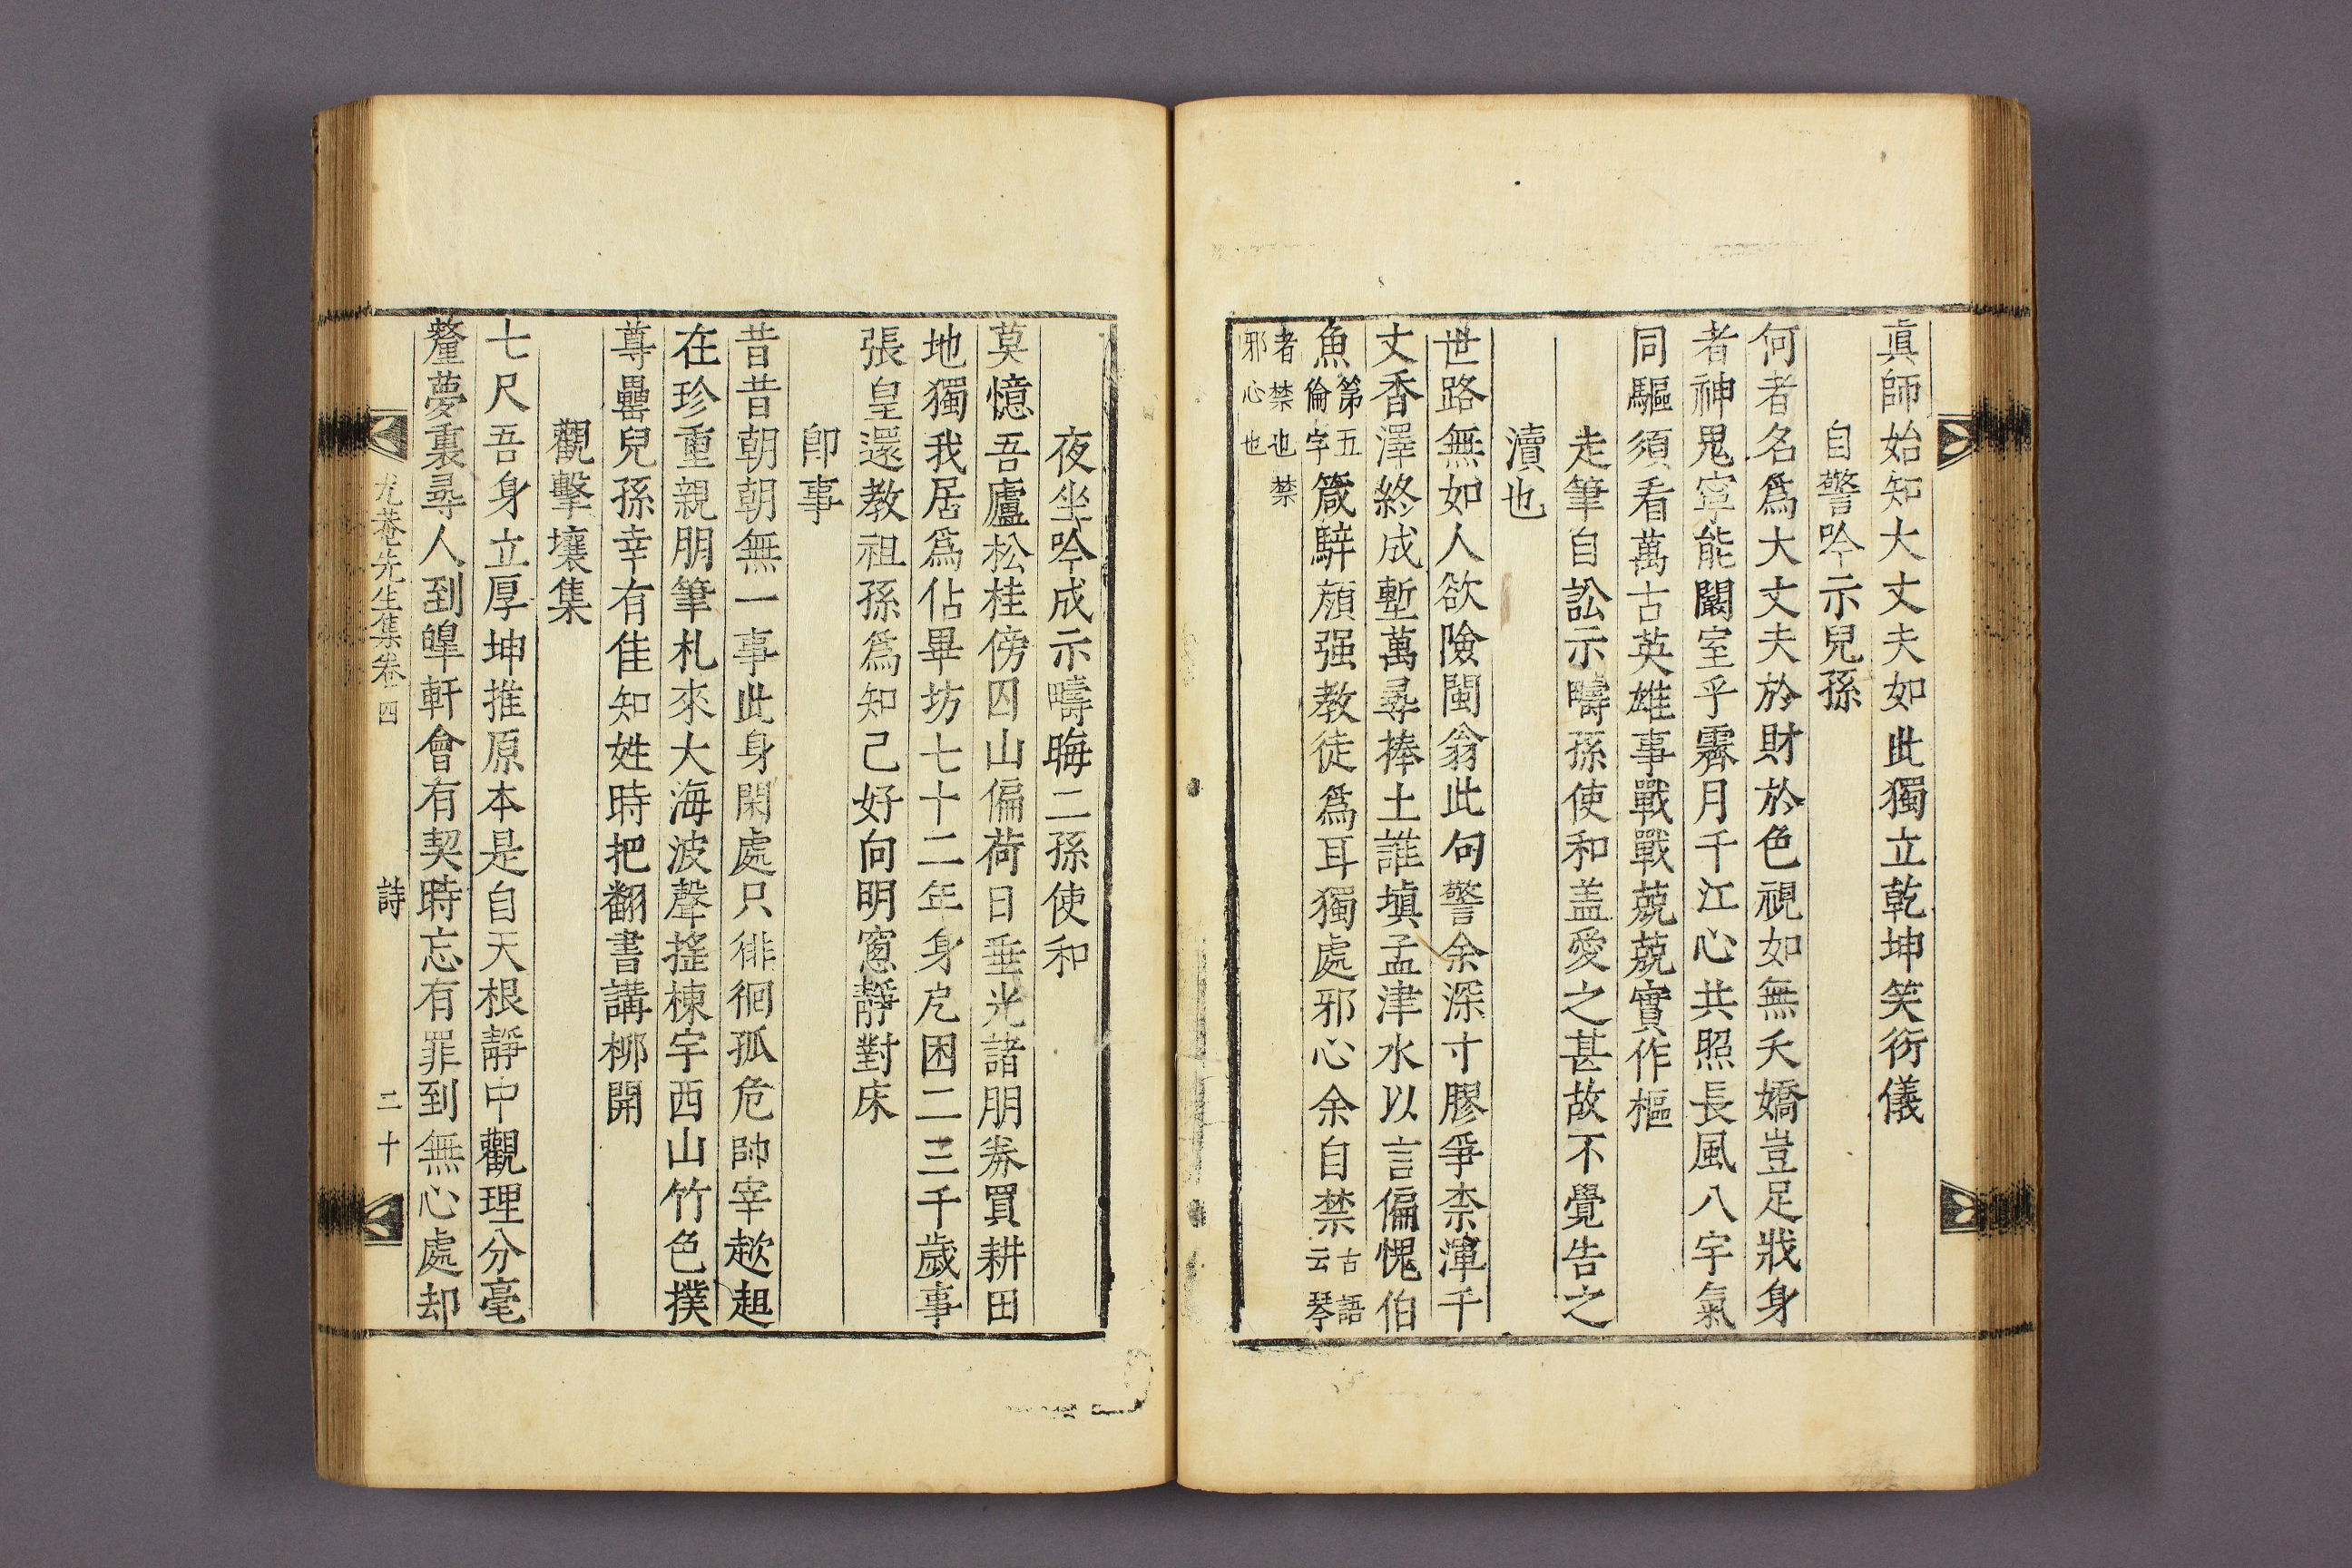 眞師始知大丈夫如此獨立乾坤笑衍儀
自警吟示兒孫
何者名爲大丈夫於財於色視如無夭嬌豈足戕身
者神鬼寧能闞室乎霽月千江心共照長風八宇氣
同驅須看萬古英雄事戰戰兢兢實作樞
走筆自訟示疇孫使和盖愛之甚故不覺告之
瀆也
世路無如人欲險閩翁此句警余深寸膠爭柰渾千
丈香澤終成塹萬尋捧土誰塡孟津水以言偏愧伯
魚第五倫字箴騂顔强教徒爲耳獨處邪心余自禁古語云琴
者禁也禁邪心也
夜坐吟成示疇晦二孫使和
莫憶吾廬松桂傍囚山偏荷日垂光諸朋券買耕田
地獨我居爲佔畢坊七十二年身戹困二三千歲事
張皇還教祖孫爲知己好向明窻靜對床
卽事
昔昔朝朝無一事此身閑處只徘徊孤危帥宰趑趄
在珍重親朋筆札來大海波聲搖棟宇西山竹色撲
尊罍兒孫幸有佳知姓時把翻書講柳開
觀擊壤集
七尺吾身立厚坤推原本是自天根靜中觀理分毫
釐夢裏尋人到皥軒會有契時忘有罪到無心處却
先生集卷四　詩　二十